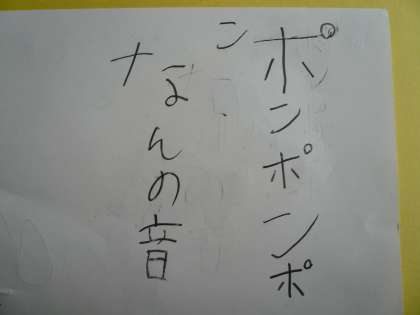 ポンポンポ
ン
なんの音
ナ